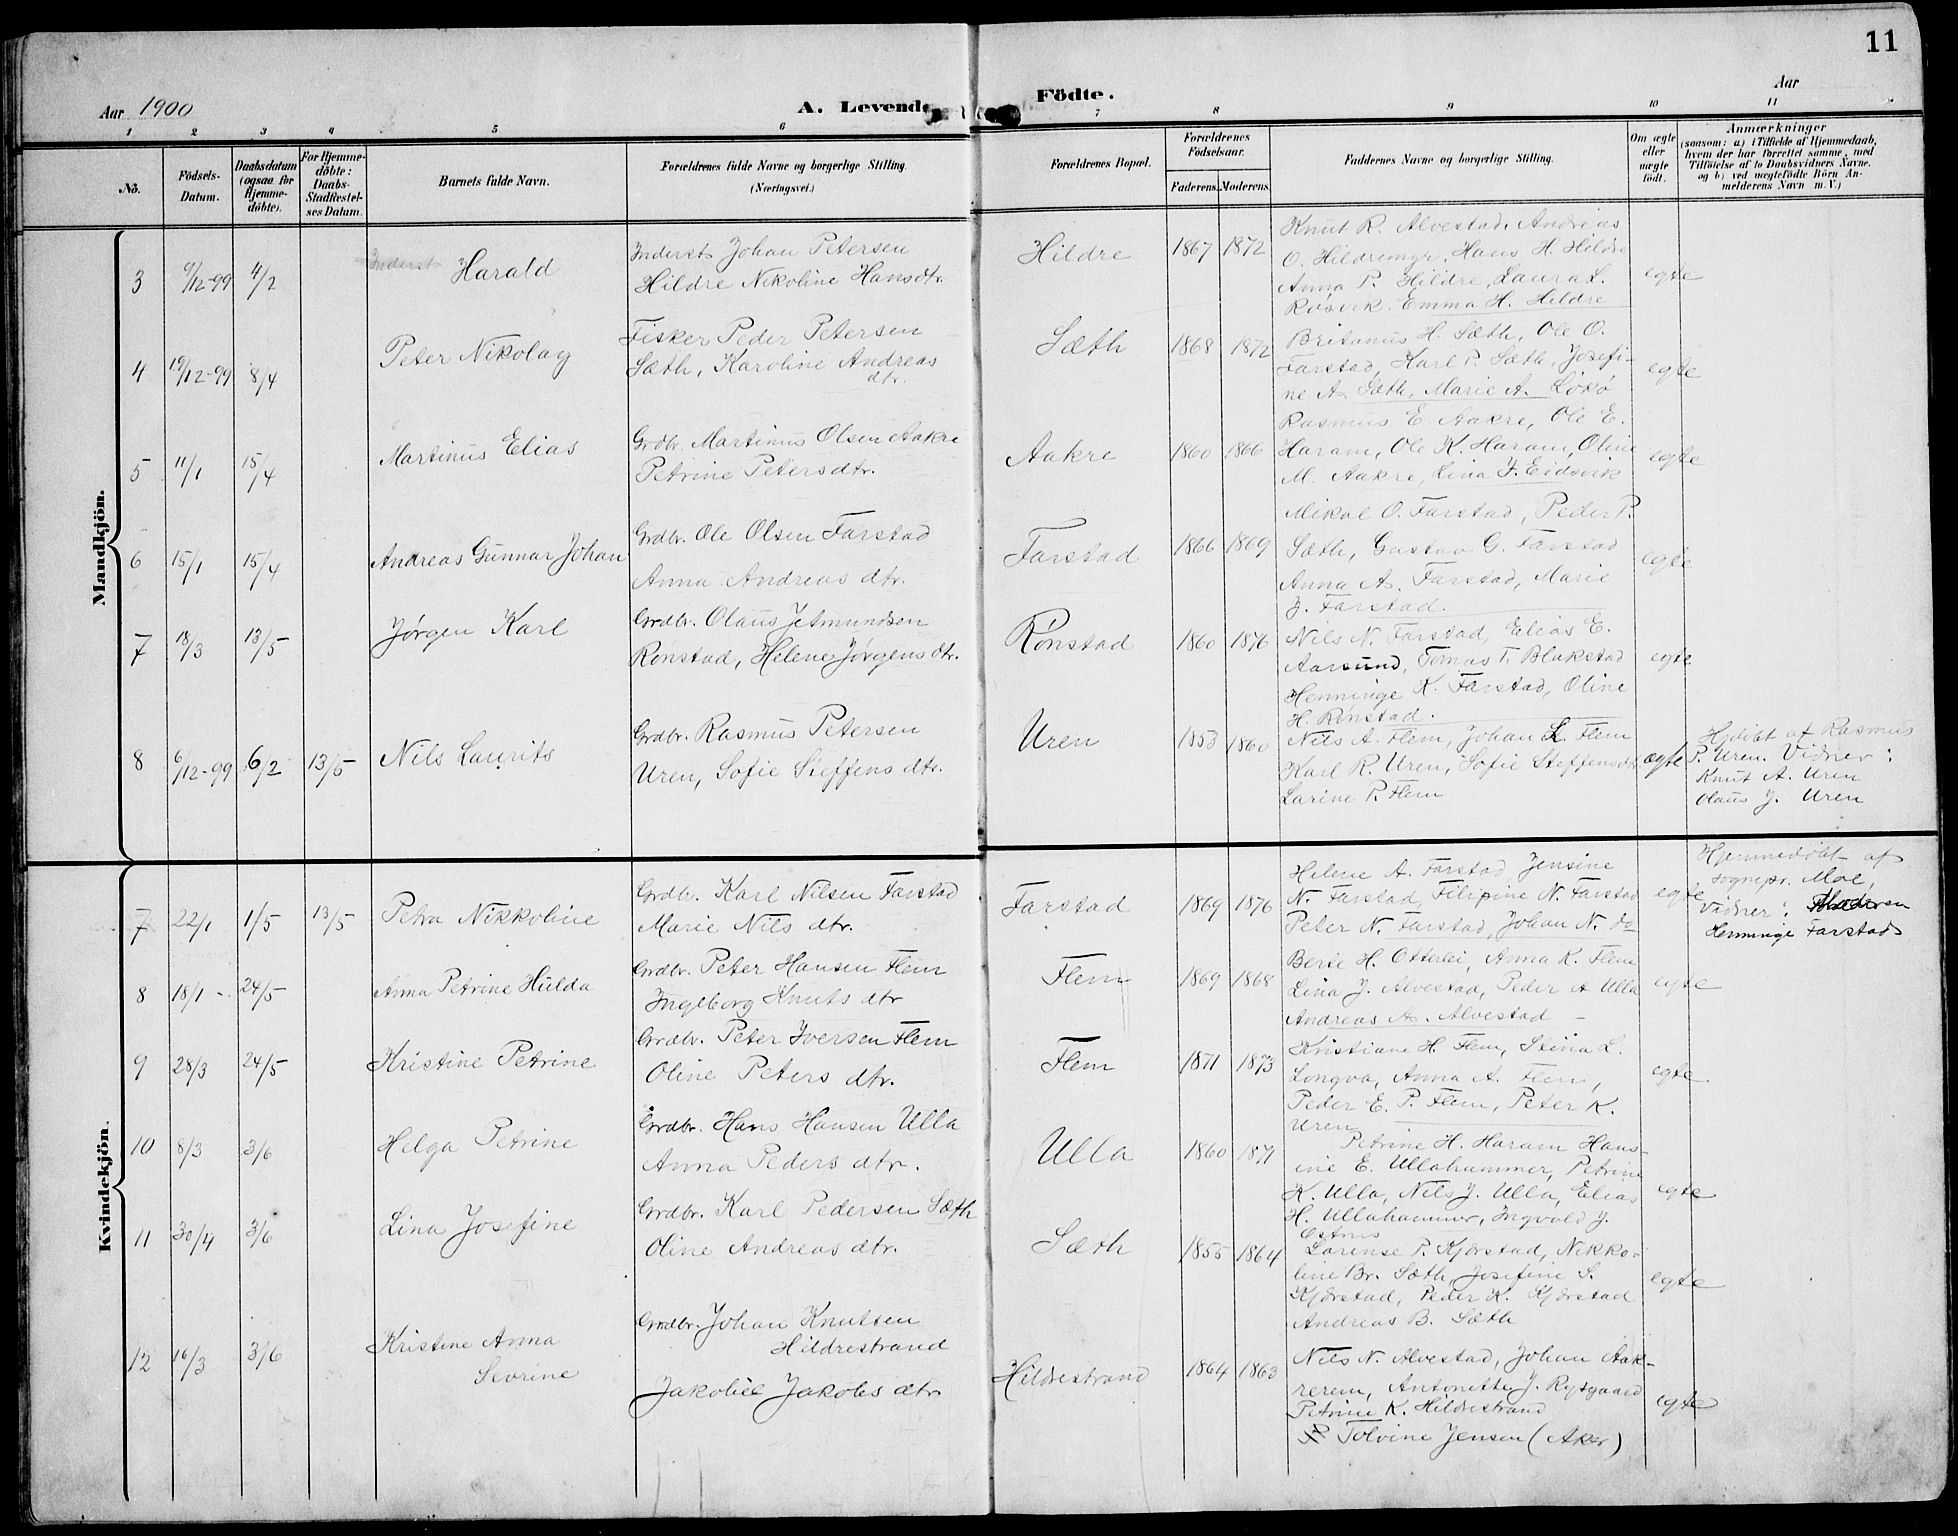 11
Aar 1900
A. Levende Födte.
Aar
1 2 3 4 5 6 7 8 9 10 11
No.
Födsels-Datum.
Daabsdatum (ogsaa for Hjemme-döbte).
For Hjemme-döbte: Daabs-Stadfæstel-ses Datum.
Barnets fulde Navn.
Forældrenes fulde Navne og borgerlige Stilling. (Næringsvei.)
Forældrenes Bopæl.
Forældrenes Födselsaar.
Faderens. Moderens.
Faddernes Navne og borgerlige Stilling.
Om ægte eller uægte födt.
Anmærkninger
(saasom: a) i Tilfælde af Hjemmedaab, hvem der har forrettet samme, med Tilföielse af to Daabsvidners Navne. og b) ved uægtefödte Börn An-melderens Navn m. V.)
Mandkjön.
3 9/12-99 4/2 Inderst Harald
Inderst Johan Petersen
Hildre Nikoline Hansdtr.
Hildre 1867 1872
Knut R. Alvestad, Andreas
O. Hildremyr, Hans H. Hildre
Anna P. Hildre, Laura L.
Røsvik. Emma H. Hildre
egte
4 19/12-99 8/4 Peter Nikolay
Fisker Peder Petersen
Sæth, Karoline Andreas
dtr.
Sæth 1868 1872
Britanus H. Sæth, Ole O.
Farstad, Karl P. Sæth, Josefi-
ne A. Sæth, Marie A. Løkø
egte
5 11/1 15/4 Martinus Elias
Grdbr. Martinus Olsen Aakre
Petrine Petersdtr.
Aakre 1860 1866
Rasmus E. Aakre, Ole E.
Haram, Ole K. Haram, Oline
M. Aakre, Lina J. Eidsvik
egte
6 15/1 15/4 Andreas Gunnar Johan
Grdbr. Ole Olsen Farstad
Anna Andreas dtr.
Farstad 1866 1869
Mikal O. Farstad, Peder P.
Sæth, Gustav G. Farstad
Anna A. Farstad, Marie
J. Farstad.
egte
7 18/3 13/5 Jørgen Karl
Grdbr. Olaus Jetmundsen
Rønstad, Helene Jørgens dtr.
Rønstad 1860 1876
Nils N. Farstad, Elias E.
Aarsund, Tomas T. Blakstad
Henninge K. Farstad, Oline
H. Rønstad.
egte
8 6/12-99 6/2 13/5 Nils Laurits
Grdbr. Rasmus Petersen
Uren, Sofie Steffens dtr.
Uren 1853 1860
Nils A. Flem, Johan L. Flem
Karl R. Uren, Sofie Steffensdtr
Larine P. Flem
ægte
Hjdøbt af Rasmus
P. Uren. Vidner:
Knut A. Uren
Olaus J. Uren
Kvindekjön.
7 22/1 1/5 13/5 Petra Nikkoline
Grdbr. Karl Nilsen Farstad
Marie Nils dtr.
Farstad 1869 1876
Helene A. Farstad, Jensine
N. Farstad, Filipine N. Farstad
Peter N. Farstad, Johan N. do
egte
Hjemmedøbt af
sognepr. Moe,
Vidner: Moderen
Henninge Farstad
8 18/1 - 24/5 Anna Petrine Hulda
Grdbr. Peter Hansen Flem
Ingeborg Knuts dtr
Flem 1869 1868
Berte H. Otterlei, Anna K. Flem
Lina J. Alvestad, Peder A Ulla
Andreas A. Alvestad -
egte
9 28/3 24/5 Kristine Petrine
Grdbr. Peter Iversen Flem
Oline Peters dtr.
Flem 1871 1873
Kristiane H. Flem, Stina L.
Longva, Anna A. Flem,
Peder E. P. Flem, Peter K.
Uren
egte
10 8/3 3/6 Helga Petrine
Grdbr. Hans Hansen Ulla
Anna Peders dtr.
Ulla 1860 1871
Petrine H. Haram Hans-
ine E. Ullahammer, Petrine
K. Ulla, Nils J. Ulla, Elias
H. Ullahammer, Ingvald J.
Østnes
egte
11 30/4 3/6 Lina Josefine
Grdbr. Karl Pedersen Sæth
Oline Andreas dtr.
Sæth 1855 1864
Lorense P. Kjørstad, Nikko-
line Br. Sæth, Josefine S.
Kjørstad, Peder K. Kjørstad
Andreas B. Sæth
egte
12 16/3 3/6 Kristine Anna
Sevrine
Grdbr. Johan Knutsen
Hildrestrand
Jakobie Jakobs dtr.
Hildrestrand 1864 1863
Nils N. Alvestad, Johan Aak-
rerem, Antonette J. Rysgaard
Petrine K. Hildrestrand
Tolvine Jensen (Aker)
egte